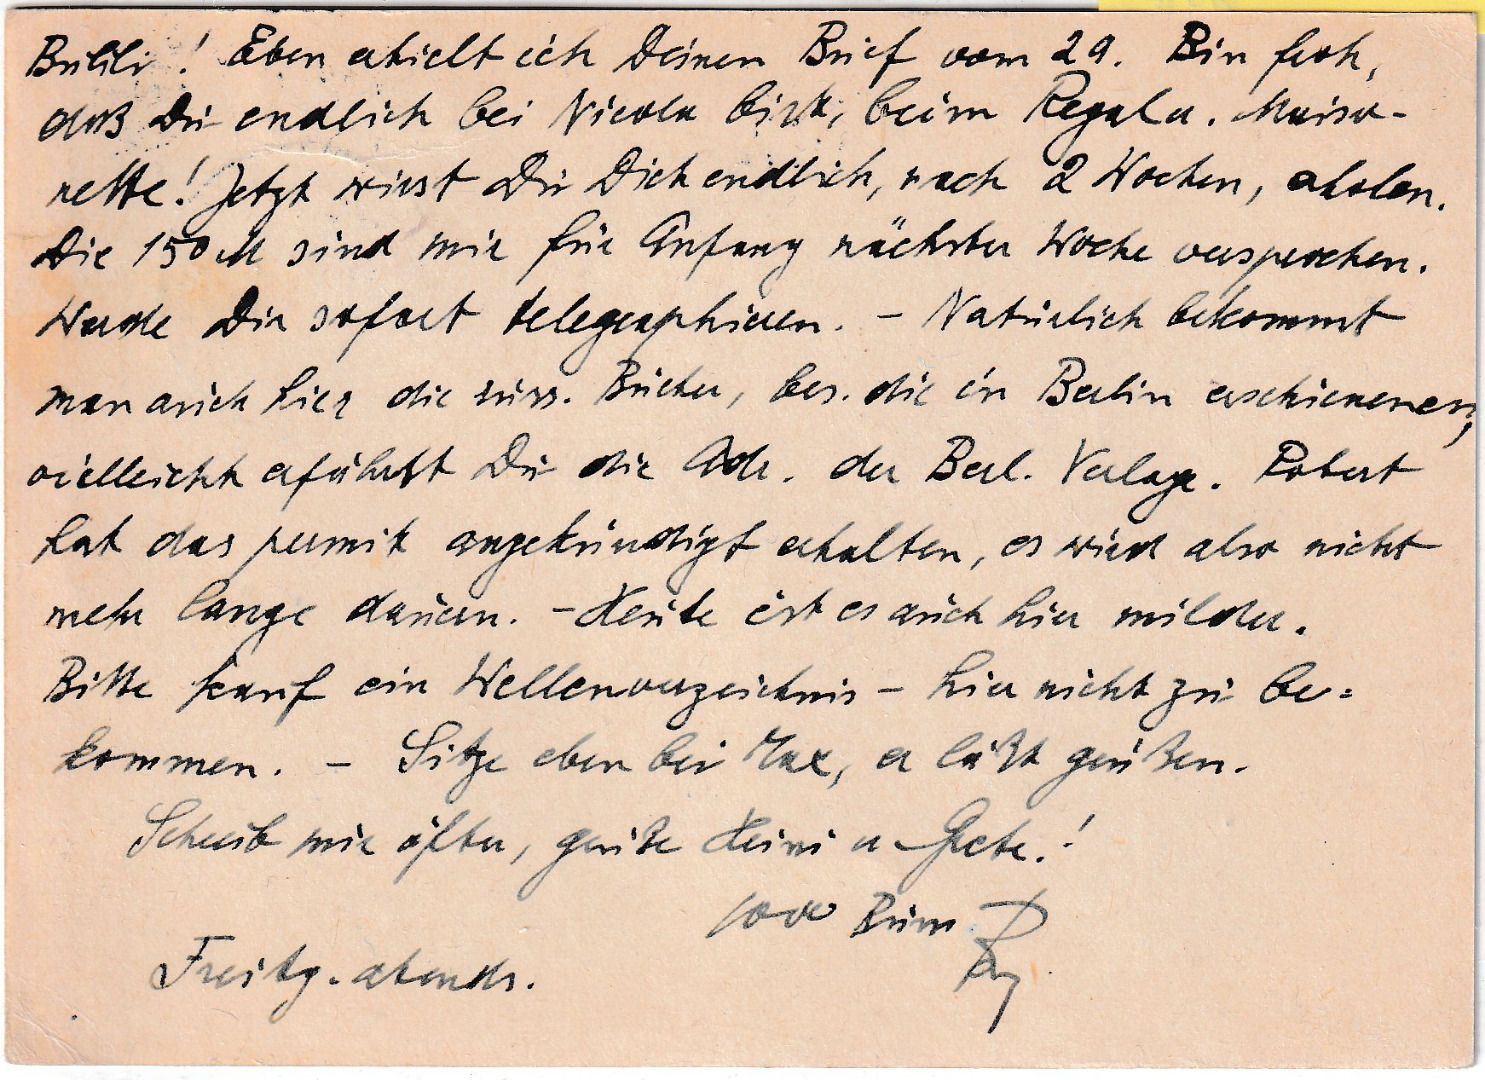 Bulili! Eben erhielt ich Deinen Brief vom 29. Bin froh,
daß Du endlich bei Nicola bist, beim Regal u.
nette! Jetzt wirst Du Dich endlich, nach 2 Wochen, erholen.
Die 150 M sind mir für Anfang nächster Woche versprochen.
Werde Dir sofort telegraphieren. – Natürlich bekommt
man auch hier die russ. Bücher, bes. die in Berlin erschienenen,
vielleicht erfährst Du die Adr. der Berl. Verlage. Robert
hat das permit angekündigt erhalten, es wird also nicht
mehr lange dauern. – Heute ist es auch hier milder.
Bitte kauf ein Wellenverzeichnis – hier nicht zu be=
kommen. – Sitze eben bei Max, er läßt grüßen.
Schreib mir öfter, grüße Heini u Grete!
1000 Bum
Freitg. abends.